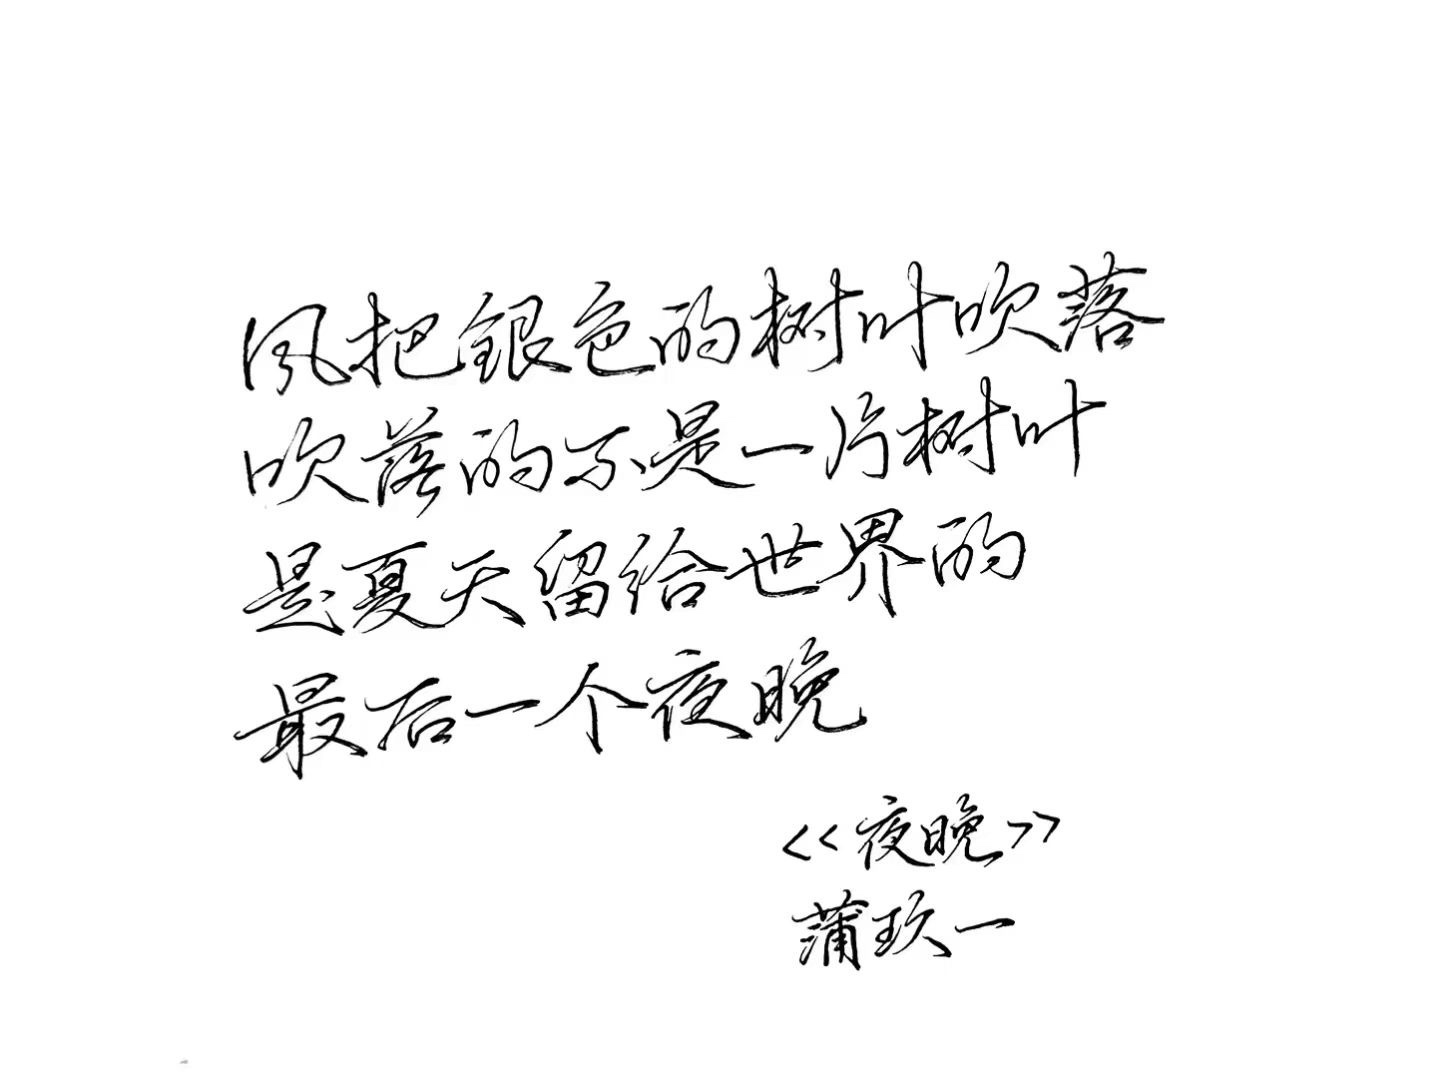 风把银色的树叶吹落
吹落的不是一片树叶
是夏天留给世界的
最后一个夜晚
<<夜晚>>
蒲玖一